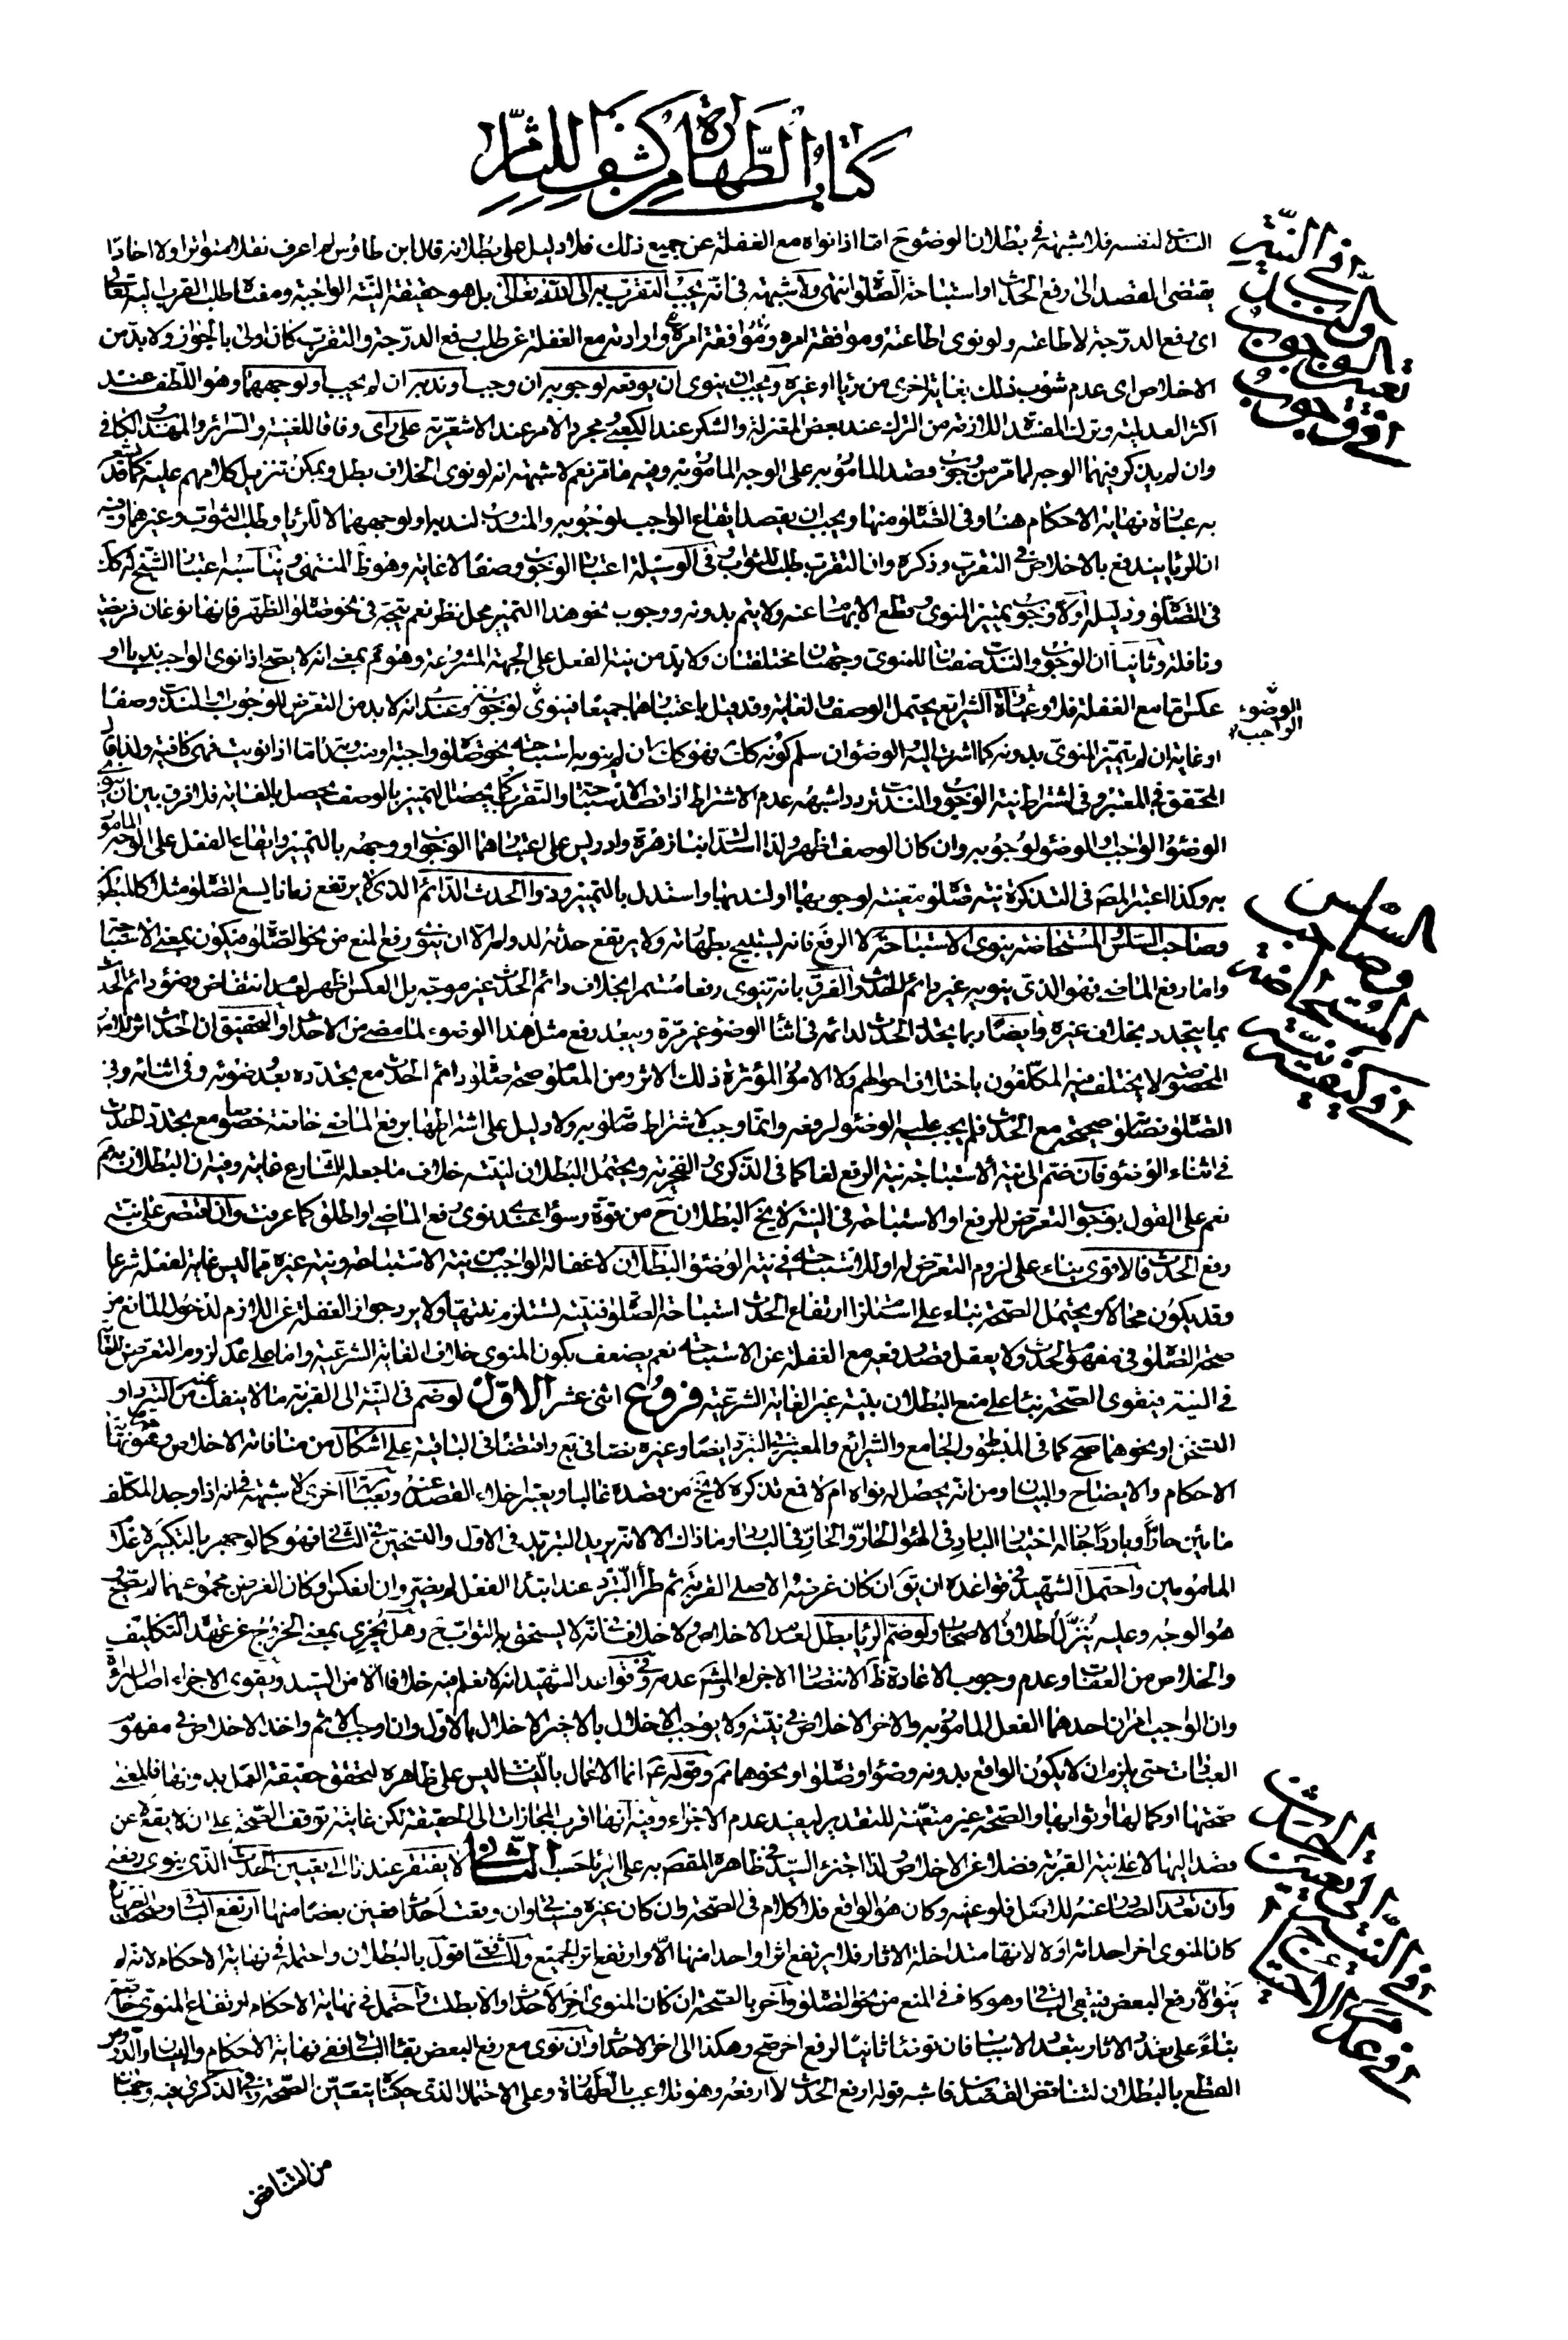 كتاب الطهارة من كشف اللثام
لنفسه فلا شبهة في بطلان الوضوء ح اما اذا نواه مع الغفلة عن جميع ذلك فلا دليل على بطلانه قال ابن طاوس لم اعرف نقلا متواترا ولا احادا
يقتضى القصد الى رفع الحدث او استباحة الصلوة انتهى ولا شبهة في انه يجب التقرب به الى الله تعالى بل هو حقيقة النية الواجبة ومعناه طلب القرب اليه تعالى
اى رفع الدرجة لاطاعته ولو نوى اطاعته وموافقة امره وموافقة امره وارادته مع الغفلة عن طلب رفع الدرجة والتقرب كان اولى بالجواز ولا بد من
الاخلاص اى عدم شوب ذلك بغاية اخرى من رياء او غيره ويجب ان ينوى ان يوقعه لوجوبه ان وجب او ندبه ان لم يجب او لوجههما وهو اللطف عند
اكثر العدلية وترك المفسدة اللازمة من الترك عند بعض المعتزلة والشكر عند الكعبى ومجرد الامر عند الاشعرية على راى وفاقا للغنية والسرائر والمهذب والكافى
وان لم يذكر فيهما الوجه لما مر من وجوب قصد المامور به على الوجه المامور به وفيه ما مر نعم لا شبهة انه لو نوى الخلاف بطل ويمكن تنزيل كلامهم عليه كما قد يشعر
به عبارة نهاية الاحكام هنا وفى الصلوة منها ويجب ان يقصد ايقاع الواجب لوجوبه والمندوب لندبه او لوجههما لا للرياء وطلب الثواب وغيرهما وفيه
ان الرياء يندفع بالاخلاص في التقرب وذكره وان التقرب طلب للثواب في الوسيلة اعتبار الوجوب وصفا لا غاية وهو ظ المنتهى ويناسبه اعتبار الشيخ له كك
فى الصلوة ودليله اولا وجوب تمييز المنوى وقطع الابهام عنه ولا يتم بدونه ووجوب نحو هذا التمييز محل نظر نعم يتجه في نحو صلوة الظهر فانها نوعان فريضة
ونافلة وثانيا ان الوجوب والندب صفتان للمنوى وجهتان مختلفتان ولا بد من نية الفعل على الجهة المشروعة وهو مم بمعنى انه لا يصح اذا نوى الواجب ندبا او
عكس اما مع الغفلة فلا وعبارة الشرايع يحتمل الوصف والغاية وقد قيل باعتبارهما جميعا فينوى لوجوبه وعند انه لا بد من التعرض للوجوب او الندب وصفا
او غاية ان لم يتميز المنوى بدونه كما اشرت اليه والوضوء ان سلم كونه كك فهو كك ان لم ينو به استباحة نحو صلوة واجبة او مندوبة اما اذا نويت فهى كافية ولذا قال
المحقق في المعتبر وفى اشتراط نية الوجوب والندب تردد اشبهه عدم الاشتراط اذا قصد الاستباحة والتقرب كما يحصل التمييز بالوصف يحصل بالغاية فلا فرق بين ان ينوى
الوضوء الواجب او الوضوء لوجوبه وان كان الوصف اظهر ولذا استند ابنا زهرة وادريس على اعتبارهما الوجوب او وجهه بالتمييز وايقاع الفعل على الوجه المامور
به وكذا اعتبر المص في التذكرة نية صلوة معينة لوجوبها او لندبها واستدل بالتمييز وذو الحدث الدائم الذى لا يرتفع زمانا يسع الصلوة مثلا كالمبطون
وصاحب السلس والمستحاضة ينوى الاستباحة لا الرفع فانه ليستبيح بطهارته ولا يرتفع حدثه لدوامه الا ان ينوى رفع المنع من نحو الصلوة فيكون بمعنى الاستباحة
واما رفع الماضى فهو الذى ينويه غير دائم الحدث والفرق بانه ينوى رفعا مستمرا بخلاف دائم الحدث غير موجه بل العكس اظهر لعدم انتقاض وضوء دائم الحدث
بما يتجدد بخلاف غيره وايضا ربما يتجدد الحدث لدائمه في اثناء الوضوء غير مرة ويبعد رفع مثل هذا الوضوء لما مضى من الاحداث والتحقيق ان الحدث اثر للامور
المخصوصة لا يختلف فيه المكلفون باختلاف احوالهم ولا الامور المؤثرة ذلك الاثر ومن المعلوم صحة صلوة دائم الحدث مع تجدده بعد وضوئه وفى اثنائه وفى
الصلوة فصلوته صحيحة مع الحدث فلم يجب عليه الوضوء لرفعه وانما وجب لاشتراط صلوته به ولا دليل على اشتراطها برفع الماضى خاصة خصوصا مع تجدد الحدث
في اثناء الوضوء فان ضم الى نية الاستباحة نية الرفع لغا كما في الذكرى والفخرية ويحتمل البطلان لنيته خلاف ما جعله الشارع غاية وفيه ان البطلان به مم
نعم على القول بوجوب التعرض للرفع او الاستباحة في النية لا يخ البطلان ح من قوة وسواء عندى نوى رفع الماضى او اطلق كما عرفت وان اقتصر على نية
رفع الحدث فالاقوى بناء على لزوم التعرض له او للاستباحة في نية الوضوء البطلان لاغفاله الواجب من نية الاستباحة ونية غيره مما ليس غاية لفعله شرعا
وقد يكون محالا ويحتمل الصحة بناء على استلزام ارتفاع الحدث استباحة الصلوة فنيته تستلزم نيتها ولا يرد جواز الغفلة عن اللازم لدخول المانع من
صحة الصلوة في مفهوم الحدث ولا يعقل قصد رفعه مع الغفلة عن الاستباحة نعم يضعف بكون المنوى خلاف الغاية الشرعية واما على عدم لزوم التعرض للغاية
في النية فيقوى الصحة بناء على منع البطلان بنية غير الغاية الشرعية فروع اثنى عشر الاول لو ضم في النية الى القربة ما لا ينفك عنه من التبرد او
التسخن او نحوهما صح كما في المبسوط والجامع والشرائع والمعتبر في التبرد ايضا وغيره نصا في بع واقتضاء في الباقية على اشكال من منافاته الاخلاص وهو خيرة نهاية
الاحكام والايضاح والبيان ومن انه يحصل له نواه ام لا فمع تذكره لا يخ من قصده غالبا ويعتبر اخلاء القصد عنه وبعبارة اخرى لا شبهة في انه اذا وجد المكلف
مائين حارا وباردا جاز له اختيار البارد في الهواء الحار والحار في البارد وما ذاك الا لانه يريد التبريد في الاول والتسخين في الثانى فهو كما لو جهر بالتكبيرة اعلاما
المامومين واحتمل الشهيد في قواعده ان يق ان كان غرضه الاصلى القربة ثم طرا التبرد عند ابتداء الفعل لم يضر وان انعكس او كان الغرض مجموعهما لم يصح
هو الوجه وعليه ينزل اطلاق الاصحاب ولو ضم الرياء بطل لعدم الاخلاص ولا خلاف في انه لا يستحق به الثواب ح وهل يجزى بمعنى الخروج عن عهدة التكليف
والخلاص من العقاب وعدم وجوب الاعادة ظ الانتصار الاجزاء والمشهور عدمه وفى قواعد الشهيد انه لا نعلم فيه خلافا الا من السيد ويقوى الاجزاء اصل البراءة
وان الواجب امران احدهما الفعل المامور به والاخر الاخلاص في نيته ولا يوجب الاخلال بالاخير الاخلال بالاول وان اوجب الاثم واخذ الاخلاص في مفهوم
العبادات حتى يلزم ان لا يكون الواقع بدونه وضوء او صلوة او نحوهما مم وقوله ع انما الاعمال بالنيات ليس على ظاهره لتحقق حقيقة العمل بدونها فالمعنى
صحتها او كمالها او ثوابها والصحة غير متعينة للتقدير ليفيد عدم الاجزاء وفيه انها اقرب المجازات الى الحقيقة لكن غايته توقف الصحة على ان لا يقع عن
قصد اليها لا على نية القربة فضلا عن الاخلاص لذا اجتزء السيد في ظاهره المقصر به على ابرياحسب الثانى لا يفتقر عندنا الى تعيين الحدث الذى ينوى رفعه
وان تعدد لصلاحيته للاصل فلو عينه وكان هو الواقع فلا كلام في الصحة وان كان غيره فسياتى وان وقعت احداث فعين بعضا منها ارتفع الباقى
كان المنوى اخر احداثه او لا لانها متداخلة الاثار فلا يرتفع اثر واحد منها الا وارتفع اثر الجميع وللشافعية قول بالبطلان واحتمله في نهاية الاحكام لانه لم
ينو الا رفع البعض فيبقى الباقى وهو كاف في المنع من نحو الصلوة واخر بالصحة ان كان المنوى اخر الاحداث والا بطلت واحتمل في نهاية الاحكام ارتفاع المنوى خاصة
بناء على تعدد الاثار بتعدد الاسباب فان توضأ ثانيا لرفع اخر صح وهكذا الى اخر الاحداث وان نوى مع رفع البعض بقاء الباقى ففى نهاية الاحكام والبيان والدروس
القطع بالبطلان لتناقض القصد فاشبه قوله ارفع الحدث لا ارفعه وهو تلاعب بالطهارة وعلى الاحتمال الذى حكيناه يتعين الصحة وفى الذكرى فيه وجهان
من التناقض
الوضوء
الواجب
السلس
وصاحب
المستحاضة